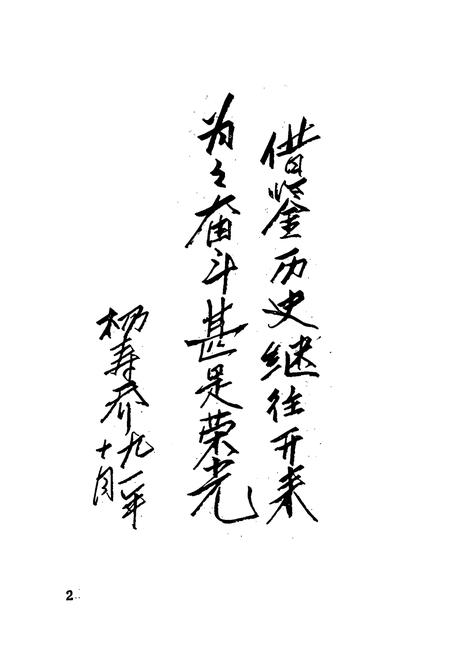 借鉴历史继往开来
为之奋斗甚是荣光
杨寿 九一年
十月
2